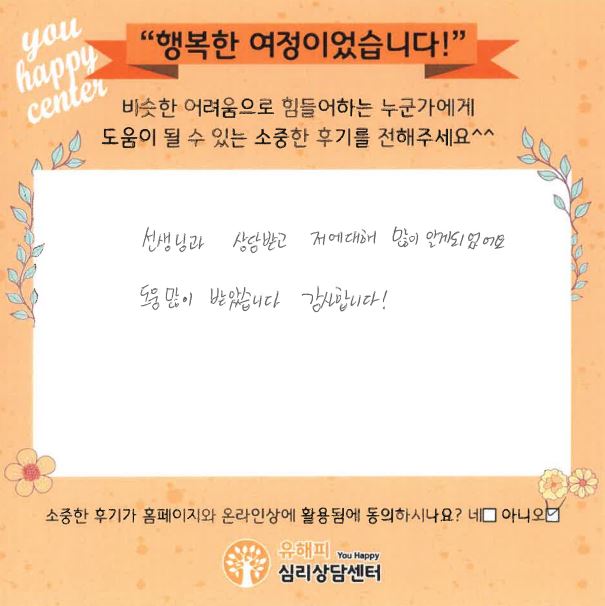 you
happy
center
“행복한 여정이었습니다!”
비슷한 어려움으로 힘들어하는 누군가에게
도움이 될 수 있는 소중한 후기를 전해주세요^^
선생님과 상담받고 저에대해 많이 알게되었어요
도움 많이 받았습니다 감사합니다!
소중한 후기가 홈페이지와 온라인상에 활용됨에 동의하시나요? 네☐ 아니오☑
유해피 You Happy
심리상담센터